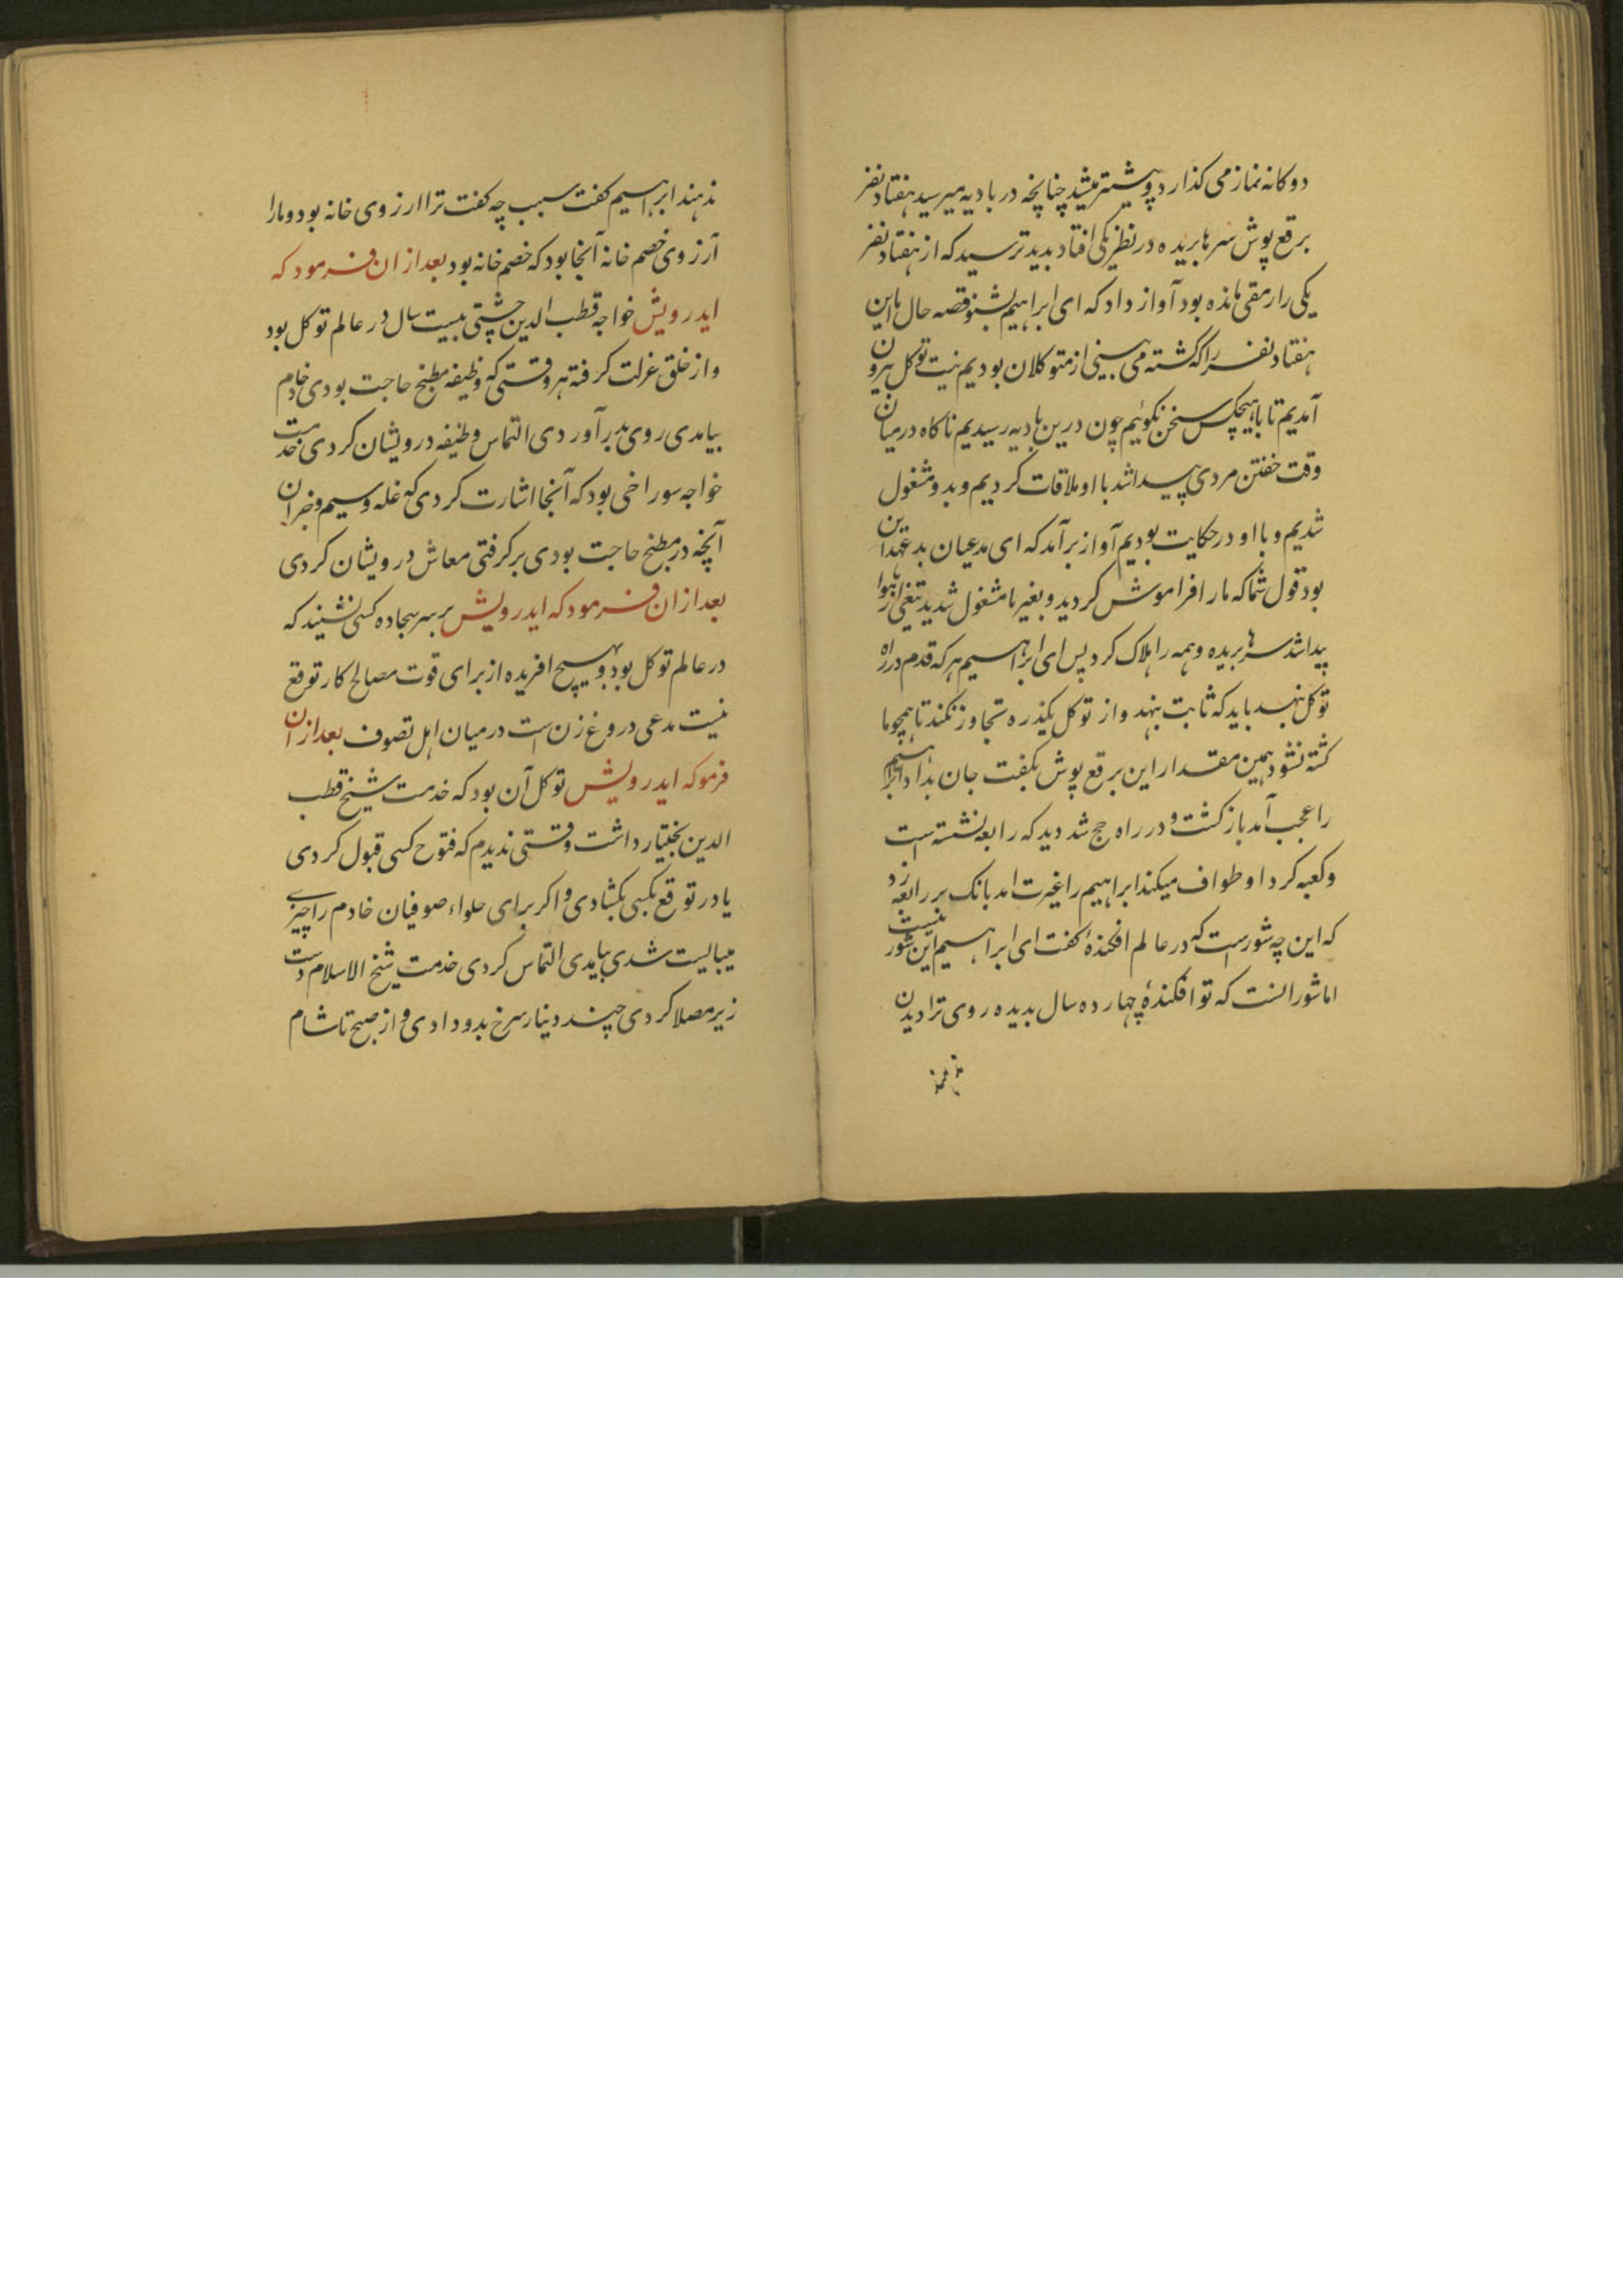 دوکانه نماز می کذارد و پیشتر میشد چنانچه در بادیه میرسید هفتاد نفر
برقع پوش سرها بریده در نظر یکی افتاد بدید ترسید که از هفتاد نفر
یکی را رمقی مانده بود آواز داد که ای ابراهیم بشنو قصه حال ما این
هفتاد نفر را که کشته می بینی از متوکلان بودیم نیت توکل بیرون
آمدیم تا با هیچکس سخن نکوئیم چون درین بادیه رسیدیم ناکاه درمیان
وقت خفتن مردی پیدا شد با او ملاقات کردیم و بدو مشغول
شدیم و با او در حکایت بودیم آواز برآمد که ای مدعیان بد عهد این
بود قول شما که ما را فراموش کردید و بغیر ما مشغول شدید تیغی از هوا
پیدا شد سرها بریده و همه را هلاک کرد پس ای ابراهیم هر که قدم در راه
توکل نهد باید که ثابت نهد و از توکل یکذره تجاوز نکند تا همچو ما
کشته نشود همین مقدار این برقع پوش بکفت جان بداد ابراهیم
را عجب آمد باز کشت و در راه حج شد دید که رابعه نشسته است
و کعبه کرد او طواف میکند ابراهیم را غیرت امد بانک بر رابعه زد
که این چه شورست که در عالم افکندهٔ کفت ای ابراهیم این شور نیست
اما شور انست که تو افکندهٔ چهارده سال بدیده روی ترا دیدن
ندهند ابراهیم کفت سبب چه کفت ترا ارزوی خانه بود و مارا
آرزوی خصم خانه آنجا بود که خصم خانه بود بعد ازان فرمود که
ایدرویش خواجه قطب الدین چشتی بیست سال در عالم توکل بود
و از خلق عزلت کرفته هر وقتی که وظیفه مطبخ حاجت بودی خادم
بیامدی روی بدر آوردی التماس وظیفه درویشان کردی خدمت
خواجه سوراخی بود که آنجا اشارت کردی که غله و سیم و جز آن
آنچه در مطبخ حاجت بودی برکرفتی معاش درویشان کردی
بعد ازان فرمود که ایدرویش بر سر سجاده کسی نشیند که
در عالم توکل بود و بهیچ افریده از برای قوت مصالح کار توقع
نیست مدعی دروغ زن است درمیان اهل تصوف بعد ازان
فرمو که ایدرویش توکل آن بود که خدمت شیخ قطب
الدین بختیار داشت وقتی ندیدم که فتوح کسی قبول کردی
یا در توقع بکسی بکشادی و اکر برای حلواء صوفیان خادم را چیزے
میبایست شدی بیامدی التماس کردی خدمت شیخ الاسلام دست
زیر مصلا کردی چند دینار سرخ بدو دادی و از صبح تا شام